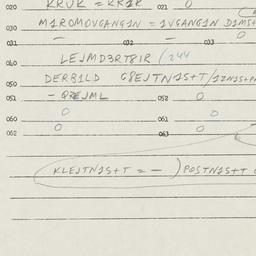 020 KRUK = KR1K 021 0
030 M1ROMOVGANG1N = 1VGANG1N D1MS+
031 — 032 — 033 0
040 LEJMD3RT8IR (244
050 DERB1LD G8EJTN1S+T/1ZN1S+P
051 — Q8EJML 052 0
060 0 061 0
062 0 063
KLEJTN1S+T = — ) POSTN1S+T